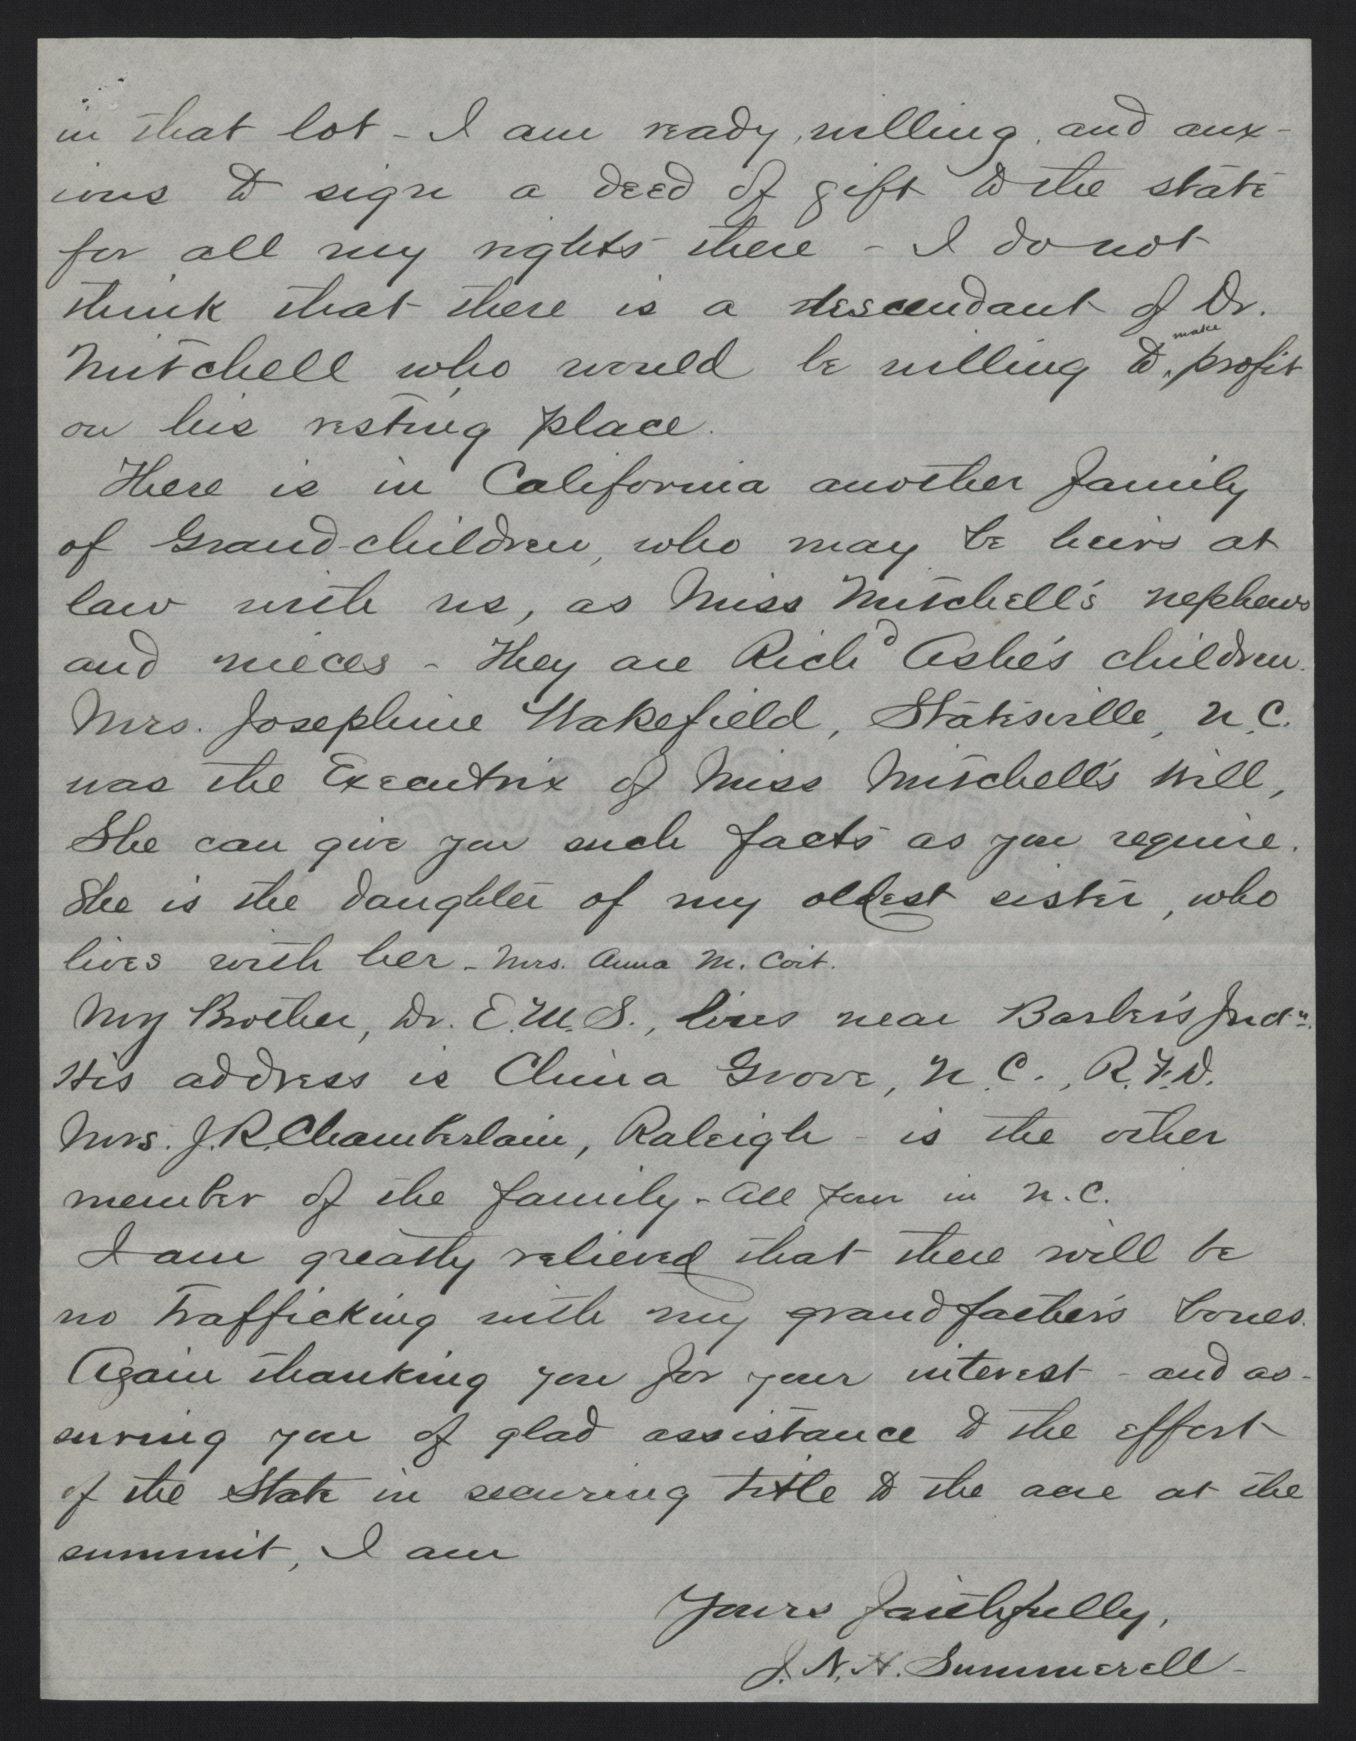 in that lot - I am ready, willing, and anx-
ious to sign a deed of gift to the state
for all my rights there - I do not
think that there is a descendant of Dr.
Mitchell who would be willing to make profit
on his resting place.
There is in California another family
of Grand-children, who may be heirs at
law with us, as Miss Mitchell's nephews
and nieces - They are Richd Ashe's children.
Mrs. Josephine Wakefield, Statesville, N.C.
was the Executrix of Miss Mitchell's Will,
She can give you such facts as you require.
She is the daughter of my oldest sister, who
lives with her - Mrs. Anna M. Coit.
My Brother, Dr. E.M.S., lives near Barber's Junctn.
His address is China Grove, N.C., R.F.D.
Mrs. J.R. Chamberlain, Raleigh - is the other
member of the family - All four in N.C.
I am greatly relieved that there will be
no trafficking with my grandfather's bones.
Again thanking you for your interest - and as-
suring you of glad assistance to the effort
of the State in securing title to the acre at the
summit, I am
Yours faithfully,
J.N.H. Summerell -